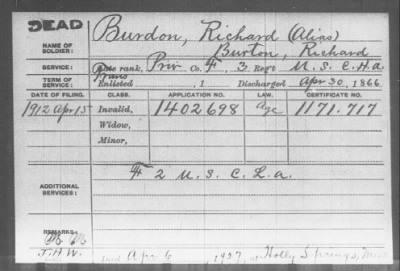 DEAD
NAME OF SOLDIER:
Burdon, Richard (Alias)
Burton, Richard
SERVICE:
Late rank, Priv Co. F, 3 Reg't U. S. C. H. a.
TERM OF SERVICE:
Enlisted , 1 Discharged Apr 30, 1866
DATE OF FILING. CLASS. APPLICATION NO. LAW. CERTIFICATE NO.
1912 Apr 15 Invalid, 1402698 Age 1171.717
Widow,
Minor,
ADDITIONAL SERVICES:
F 2 U. S. C. L. a.
REMARKS:
J.H.W. died Apr 6, 1927, at Holly Springs, Miss